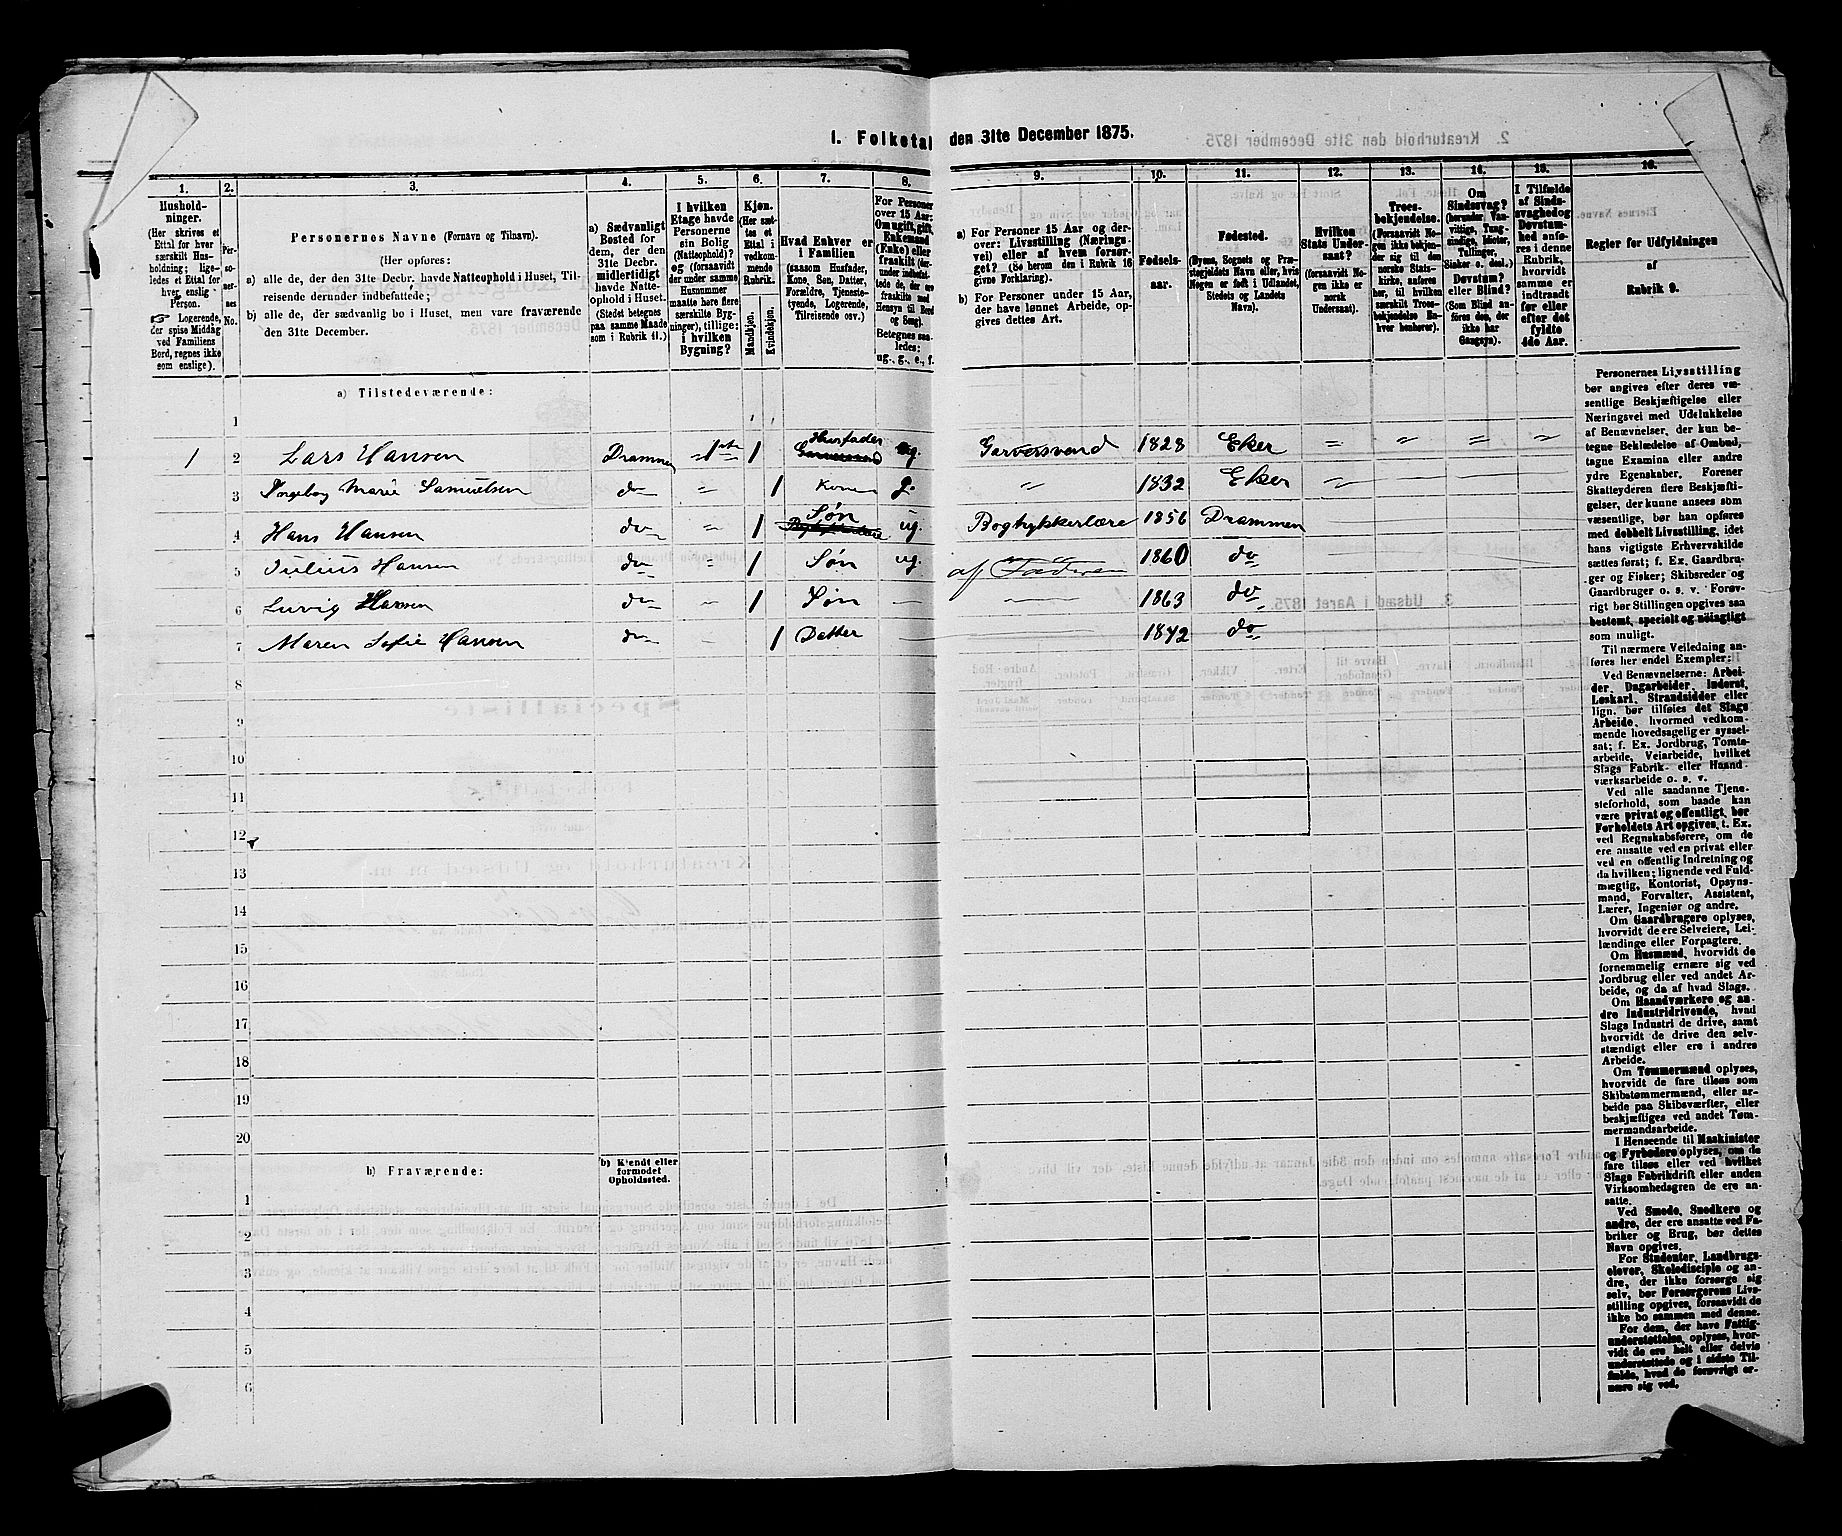 1. Folketal den 31te December 1875.
1.
2.
3.
4.
5.
6.
7.
8.
9.
10.
11.
12.
13.
14.
15.
16.
Hushold-
ninger.
(Her skrives et
Ettal for hver
særskilt Hus-
holdning; lige-
ledes et Ettal for
hver enslig
Person.
☞ Logerende,
der spise Middag
ved Familiens
Bord, regnes ikke
som enslige).
Per-
so-
ner-
nes
No.
Personernes Navne (Fornavn og Tilnavn).
(Her opføres:
a) alle de, der den 31te Decbr. havde Natteophold i Huset, Til-
reisende derunder indbefattede;
b) alle de, der sædvanlig bo i Huset, men vare fraværende
den 31te December.
a) Sædvanligt
Bosted for
dem, der den
31te Decbr.
midlertidigt
havde Natte-
ophold i Huset.
(Stedet betegnes
paa samme Maade
som i Rubrik 11.)
I hvilken
Etage havde
Personerne
sin Bolig
(Natteophold)?
og (forsaavidt
der under samme
Husnummer
maatte høre flere
særskilte Byg-
ninger), tillige:
i hvilken
Bygning?
Kjøn.
(Her sæt-
tes et
Ettal i
vedkom-
mende
Rubrik.
Mandkjøn.
Kvindekjøn.
Hvad Enhver er
i Familien
(saasom Husfader,
Kone, Søn, Datter,
Forældre, Tjeneste-
tyende, Logerende,
Tilreisende osv.)
For Personer
over 15 Aar:
Om ugift, gift,
Enkemand
(Enke) eller
fraskilt (der-
under indbefat-
tede de, der ere
fraskilte med
Hensyn til Bord
og Seng).
Betegnes saa-
ledes:
ug., g., e., f.
a) For Personer 15 Aar og der-
over: Livsstilling (Nærings-
vei) eller af hvem forsør-
get? (Se herom den i Rubrik 16
givne Forklaring).
b) For Personer under 15 Aar,
der have lønnet Arbeide, op-
gives dettes Art.
Fødsels-
aar.
Fødested.
(Byens, Sognets og Præ-
stegjeldets Navn eller, hvis
Nogen er født i Udlandet,
Stedets og Landets
Navn).
Hvilken
Stats Under-
saat?
(forsaavidt No-
gen ikke er
norsk
Undersaat).
Troes-
bekjendelse.
(Forsaavidt No-
gen ikke bekjen-
der sig til den
norske Stats-
kirke, anføres
her, til hvilken
særskilt Troes-
bekjendelse En-
hver henhører).
Om
Sindssvag?
(herunder Van-
vittige, Tung-
sindige, Idioter,
Tullinger,
Sinker o. desl.)
Døvstum?
eller Blind?
(Som Blind an-
føres den, der
ikke har
Gangsyn).
I Tilfælde
af Sinds-
svaghed og
Døvstum-
hed anfø-
res i denne
Rubrik,
hvorvidt
samme er
indtraadt
før eller
efter det
fyldte
4de Aar.
Regler for Udfyldningen
af
Rubrik 9.
a) Tilstedeværende:
1
1 2 Lars Hansen Drammen 1st 1 Husfader g. Garversvend 1828 Eker
3 Ingebog Marie Samuelsen do 1 Kone g. 1832 Eker
4 Hans Hansen do 1 Søn ug. Bogtykkerlære 1856 Drammen
5 Julius Hansen do 1 Søn ug. af Faderen 1860 do
6 Luvig Hansen do 1 Søn 1863 do
7 Maren Sofie Hansen do 1 Datter 1872 do
8
9
10
11
12
13
14
15
16
17
18
19
20
b) Fraværende:
b) Kjendt eller
formodet
Opholdssted.
1
2
3
4
5
6
Personernes Livsstilling
bør angives efter deres væ-
sentlige Beskjæftigelse eller
Næringsvei med Udelukkelse
af Benævnelser, der kun be-
tegne Beklædelse af Ombud,
tagne Examina eller andre
ydre Egenskaber. Forener
Skatteyderen flere Beskjæfti-
gelser, der kunne ansees som
væsentlige, bør han opføres
med dobbelt Livsstilling, idet
hans vigtigste Erhvervskilde
sættes først; f. Ex. Gaardbru-
ger og Fisker; Skibsreder og
Gaardbruger o. s. v. Forøv-
rigt bør Stillingen opgives saa
bestemt, specielt og nöiagtigt
som muligt.
Til nærmere Veiledning an-
føres her endel Exempler:
Ved Benævnelserne: Arbei-
der, Dagarbeider, Inderst,
Løskarl, Strandsidder eller
lign. bør tilføies det Slags
Arbeide, hvormed vedkom-
mende hovedsagelig er syssel-
sat; f. Ex. Jordbrug, Tomte-
arbeide, Veiarbeide, hvilket
Slags Fabrik- eller Haand-
værksarbeide o. s. v.
Ved alle saadanne Tjene-
steforhold, som baade kan
være privat og offentligt, bør
Forholdets Art opgives, t. Ex.
ved Regnskabsførere, om de
ere ansatte ved en privat eller
ved en offentlig Indretning og
da hvilken; lignende ved Fuld-
mægtig, Kontorist, Opsyns-
mand, Forvalter, Assistent,
Lærer, Ingeniør og andre.
Om Gaardbrugere oplyses,
hvorvidt de ere Selveiere, Lei-
lændinge eller Forpagtere.
Om Husmænd, hvorvidt de
fornemmelig ernære sig ved
Jordbrug eller ved andet Ar-
beide, og da af hvad Slags.
Om Haandværkere og an-
dre Industridrivende, hvad
Slags Industri de drive, samt
hvorvidt de drive den selv-
stændigt eller ere i andres
Arbeide.
Om Tømmermænd oplyses,
hvorvidt de fare tilsøs som
Skibstømmermænd, eller ar-
beide paa Skibsværfter, eller
beskjæftiges ved andet Tøm-
mermandsarbeide.
I Henseende til Maskinister
og Fyrbødere oplyses, om de
fare tilsøs eller ved hvilket
Slags Fabrikdrift eller anden
Virksomhedsgren de ere an-
satte.
Ved Smede, Snedkere og
andre, der ere ansatte ved Fa-
briker og Brug, bør dettes
Navn opgives.
For Studenter, Landbrugs-
elever, Skoledisciple og an-
dre, der ikke forsørge sig
selv, bør Forsørgerens Livs-
stilling opgives, forsaavidt de
ikke bo sammen med denne.
For dem, der have Fattig-
understøttelse, oplyses, hvor-
vidt de ere helt eller delvis
understøttede og i sidste Til-
fælde, hvad de forøvrigt er-
nære sig ved.